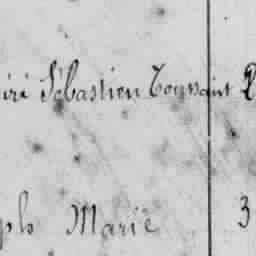 iré Sébastien Toussaint 2
ph Marie 3